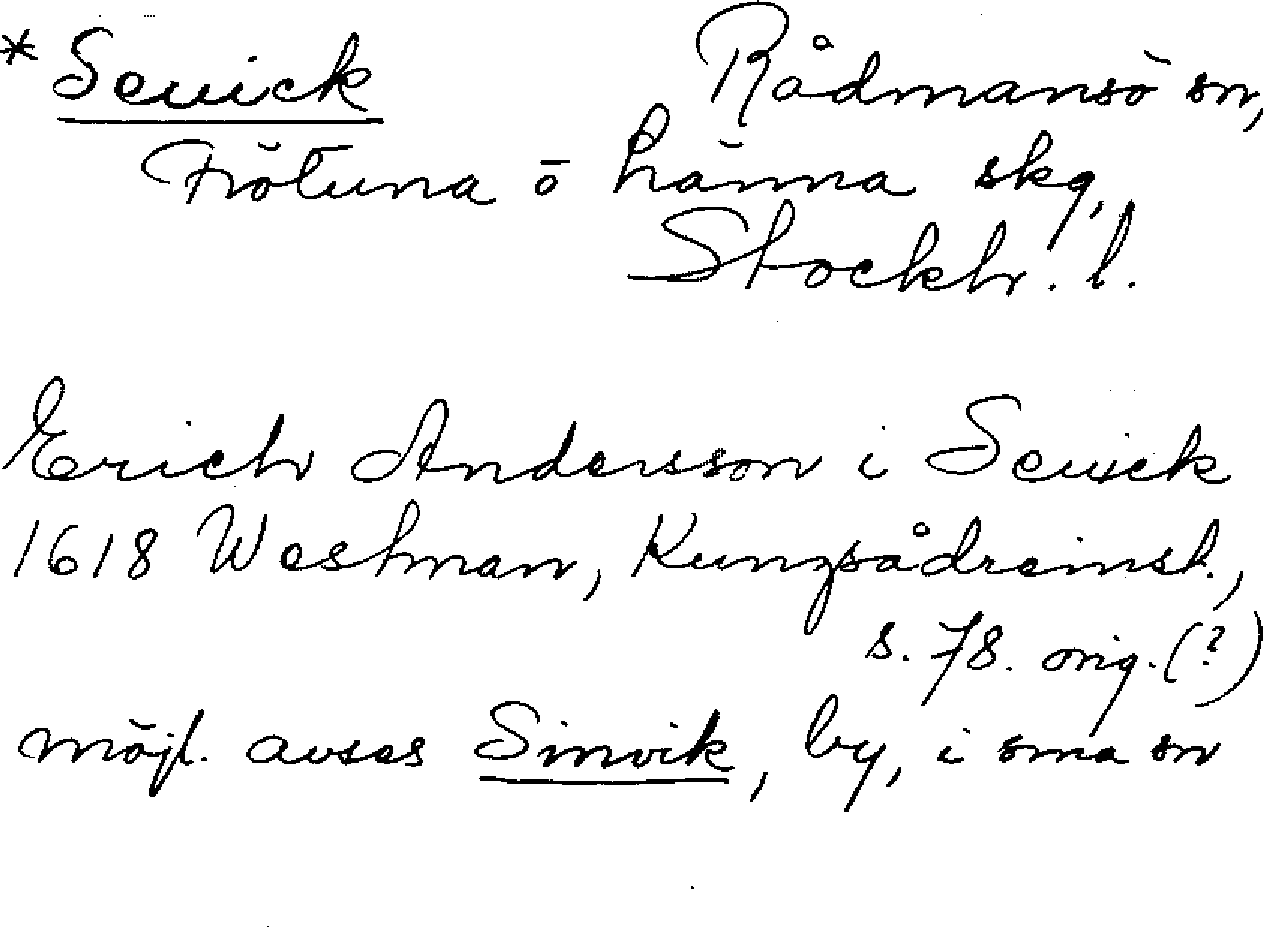 *Seuick Rådmansö sn,
Frötuna o Länna skg,
Stockh. l.
Erich Andersson i Seuick
1618 Westman, Kungsådreinst.,
s. 78. orig. (?)
möjl. avses Sinvik, by, i sma sn